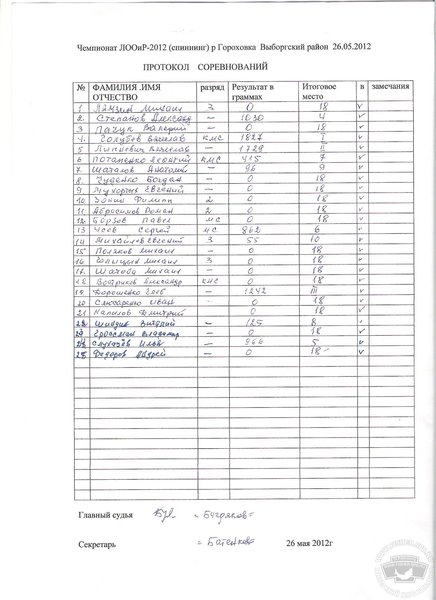 Чемпионат ЛООиР-2012 (спиннинг) р Гороховка Выборгский район 26.05.2012
ПРОТОКОЛ СОРЕВНОВАНИЙ
№ ФАМИЛИЯ .ИМЯ ОТЧЕСТВО разряд Результат в граммах Итоговое место в замечания
1 Михаил 3 0 18 v
2. Степанов Александр – 1030 4 v
3 Пачук Валерий – 0 18 v
4. Голубев Вячеслав КМС 1827 I v
5 Вячеслав – 1729 II v
6 Потапенко КМС 415 7 v
7 Шаталов Анатолий – 96 9 v
8 Руденко Богдан – 0 18 v
9 Мухортых Евгений – 0 18 v
10 Филипп 2 0 18 v
11 Абросимов Роман 2 0 18 v
12 Борзов Павел МС 0 18 v
13 Усов Сергей МС 862 6 v
14 Михайлов Евгений 3 55 10 v
15 Поляков Михаил – 0 18 v
16 Голицын Михаил 3 0 18 v
17 Шахова – 0 18 v
18 Востриков Александр КМС 0 18 v
19 Дорошенко Глеб – 1242 III v
20 Слюсаренко Иван – 0 18 v
21 Капилов Дмитрий 0 18 v
22 Шиндин – 125 8 v
23 Гроссман Владимир – 0 18 v
24 Слухаев Илья – 966 5 v
25 Федоров Андрей – 0 18 – v
Главный судья
Секретарь = Батенков 26 мая 2012г